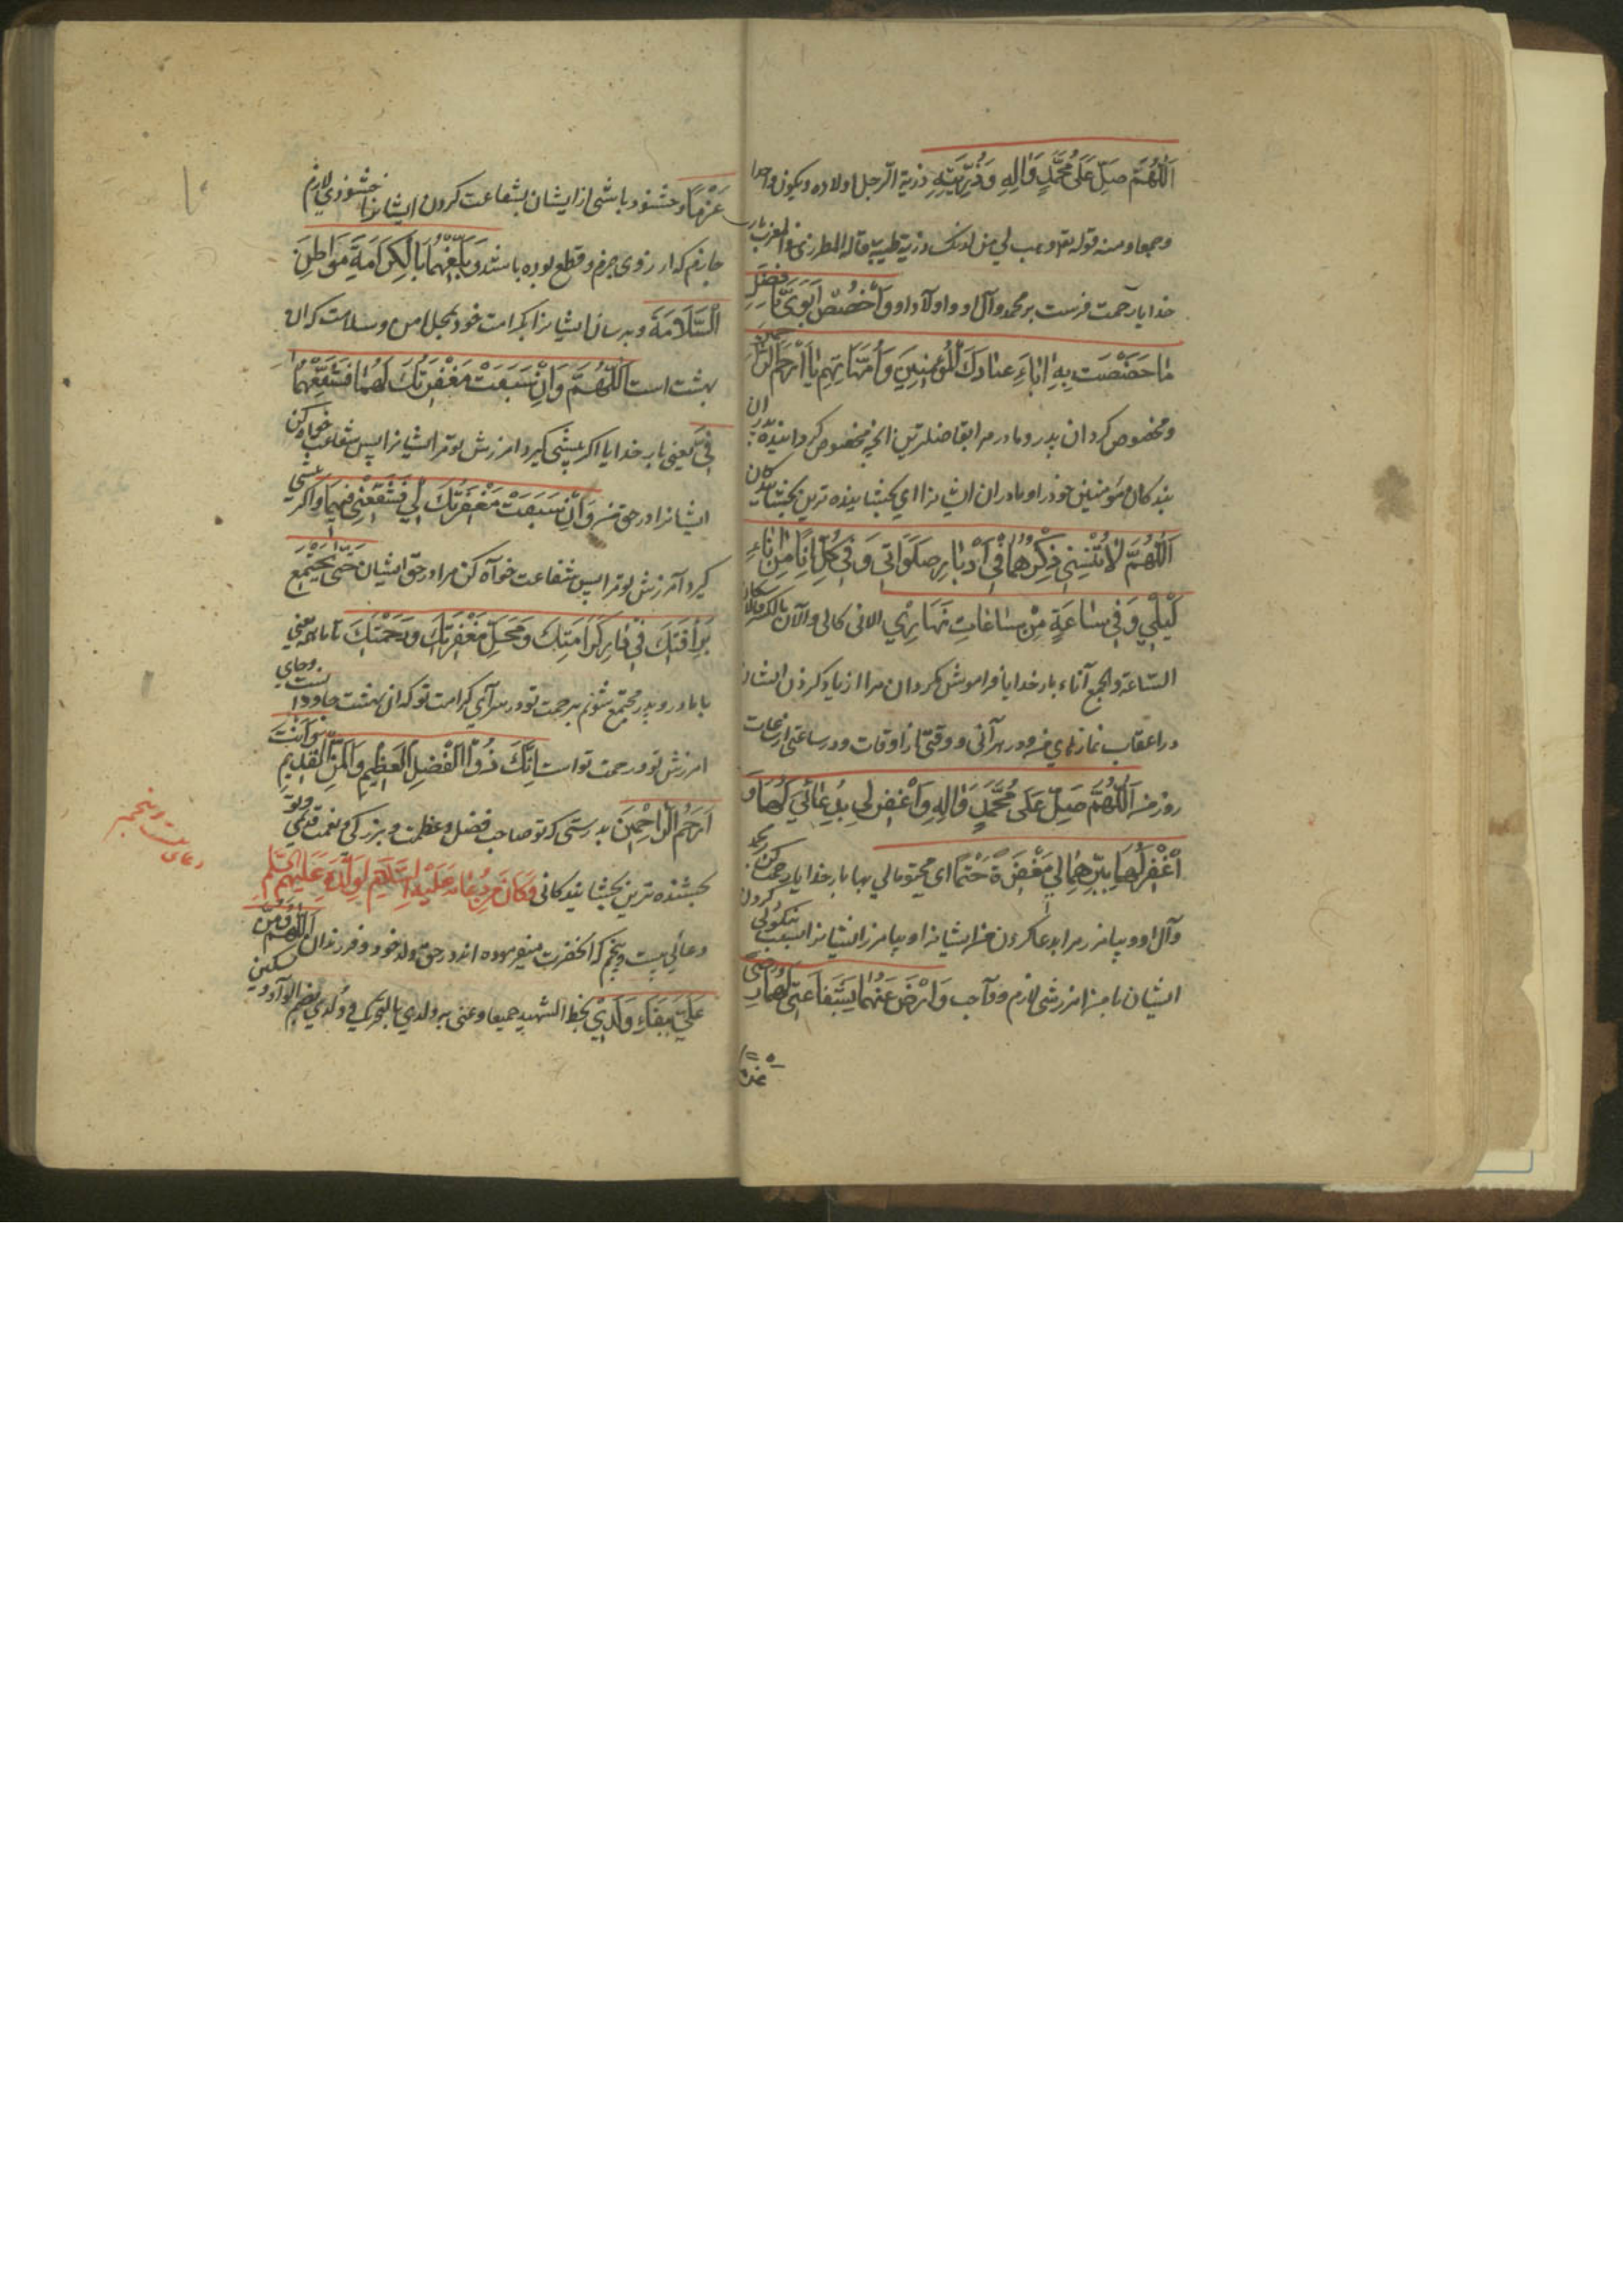 اَللّهُمَّ صَلِّ عَلى مُحَمَّدٍ وَالِهِ وَذُرِّيَّتِهِ ذرية الرجل اولاده ويكون واحدا
وجمعا ومنه قوله تعالى وهب لي من لدنك ذرية طيبة قاله المطرزي في المغرب بار
خدايا رحمت فرست بر محمد وآل او واولاد او وَاخْصُصْ اَبَوَيَّ بِاَفْضَلِ
ما خَصَصْتَ بِهِ اباءَ عِبادِكَ الْمُؤْمِنينَ وَاُمَّهاتِهِم يا اَرْحَمَ الرّاحِمينَ
ومخصوص كردان پدر ومادر مرا بفاضلترين آنچه مخصوص كردانيده پدران
بندكان مؤمنين خود را ومادران ايشانرا اي بخشاينده ترين بخشايندكان
اَللّهُمَّ لا تُنْسِني ذِكْرَهُما في اَدْبارِ صَلَواتي وَفي كُلِّ اِنًا مِنْ اناءِ
لَيْلي وَفي ساعَةٍ مِنْ ساعاتِ نَهاري الانى كالى والآن بالكسر كالا
الساعة والجمع آناء بار خدايا فراموش مكردان مرا از ياد كردن ايشان
در اعقاب نمازهاي من ودر هر آنى ووقتى از اوقات ودر ساعتى از ساعات
روز من اَللّهُمَّ صَلِّ عَلى مُحَمَّدٍ وَالِهِ وَاغْفِرْ لي بِدُعائي لَهُما وَ
اغْفِرْ لَهُما بِبِرِّهِما لي مَغْفِرَةً حَتْمًا اي بار خدايا رحمت كن بر محمد
وآل او وبيامرز مرا بدعا كردن من ايشانرا وبيامرز ايشانرا بسبب نيكوئى كردن
ايشان با من امرزشى لازم وواجب وَارْضَ عَنْهُما بِشَفاعَتي لَهُما رِضًى
عَزْمًا وخشنود باشى از ايشان بشفاعت كردن ايشانرا خشنودي لازم
جازم كه از روى جزم وقطع بوده باشد وَبَلِّغْهُما بِالْكَرامَةِ مَواطِنَ
السَّلامَةِ وبرسان ايشانرا بكرامت خود بمحل امن وسلامت كه آن
بهشت است اَللّهُمَّ وَاِنْ سَبَقَتْ مَغْفِرَتُكَ لَهُما فَشَفِّعْهُما
فِيَّ يعني بار خدايا اكر پيشى كيرد امرزش تو مر ايشانرا پس شفاعت خواه كن
ايشانرا در حق من وَاِنْ سَبَقَتْ مَغْفِرَتُكَ لي فَشَفِّعْني فيهِما واكر پيشى
كيرد آمرزش تو مرا پس شفاعت خواه كن مرا در حق ايشان حَتّى نَجْتَمِعَ
بِرَأْفَتِكَ في دارِ كَرامَتِكَ وَمَحَلِّ مَغْفِرَتِكَ وَرَحْمَتِكَ يعني
با مادر وپدر مجتمع شويم برحمت تو در سراي كرامت تو كه آن بهشت است وجاي
امرزش تو ورحمت تو است اِنَّكَ ذُو الْفَضْلِ الْعَظيمِ وَالْمَنِّ الْقَديمِ وَاَنْتَ
اَرْحَمُ الرّاحِمينَ بدرستى كه تو صاحب فضل وعظمت وبزركى ونعمت قديمى وتو
بخشنده ترين بخشايندكانى وَكانَ مِنْ دُعائِهِ عَلَيْهِ السَّلامُ لِوُلْدِهِ عَلَيْهِمُ السَّلامُ
دعائى بيست وپنجم كه آنحضرت ميفرموده اند در حق ولد خود وفرزندان اَللّهُمَّ وَمُنَّ
عَلَيَّ بِبَقاءِ وُلْدي بخط الشهيد جميعا
دعاى بيست وپنجم